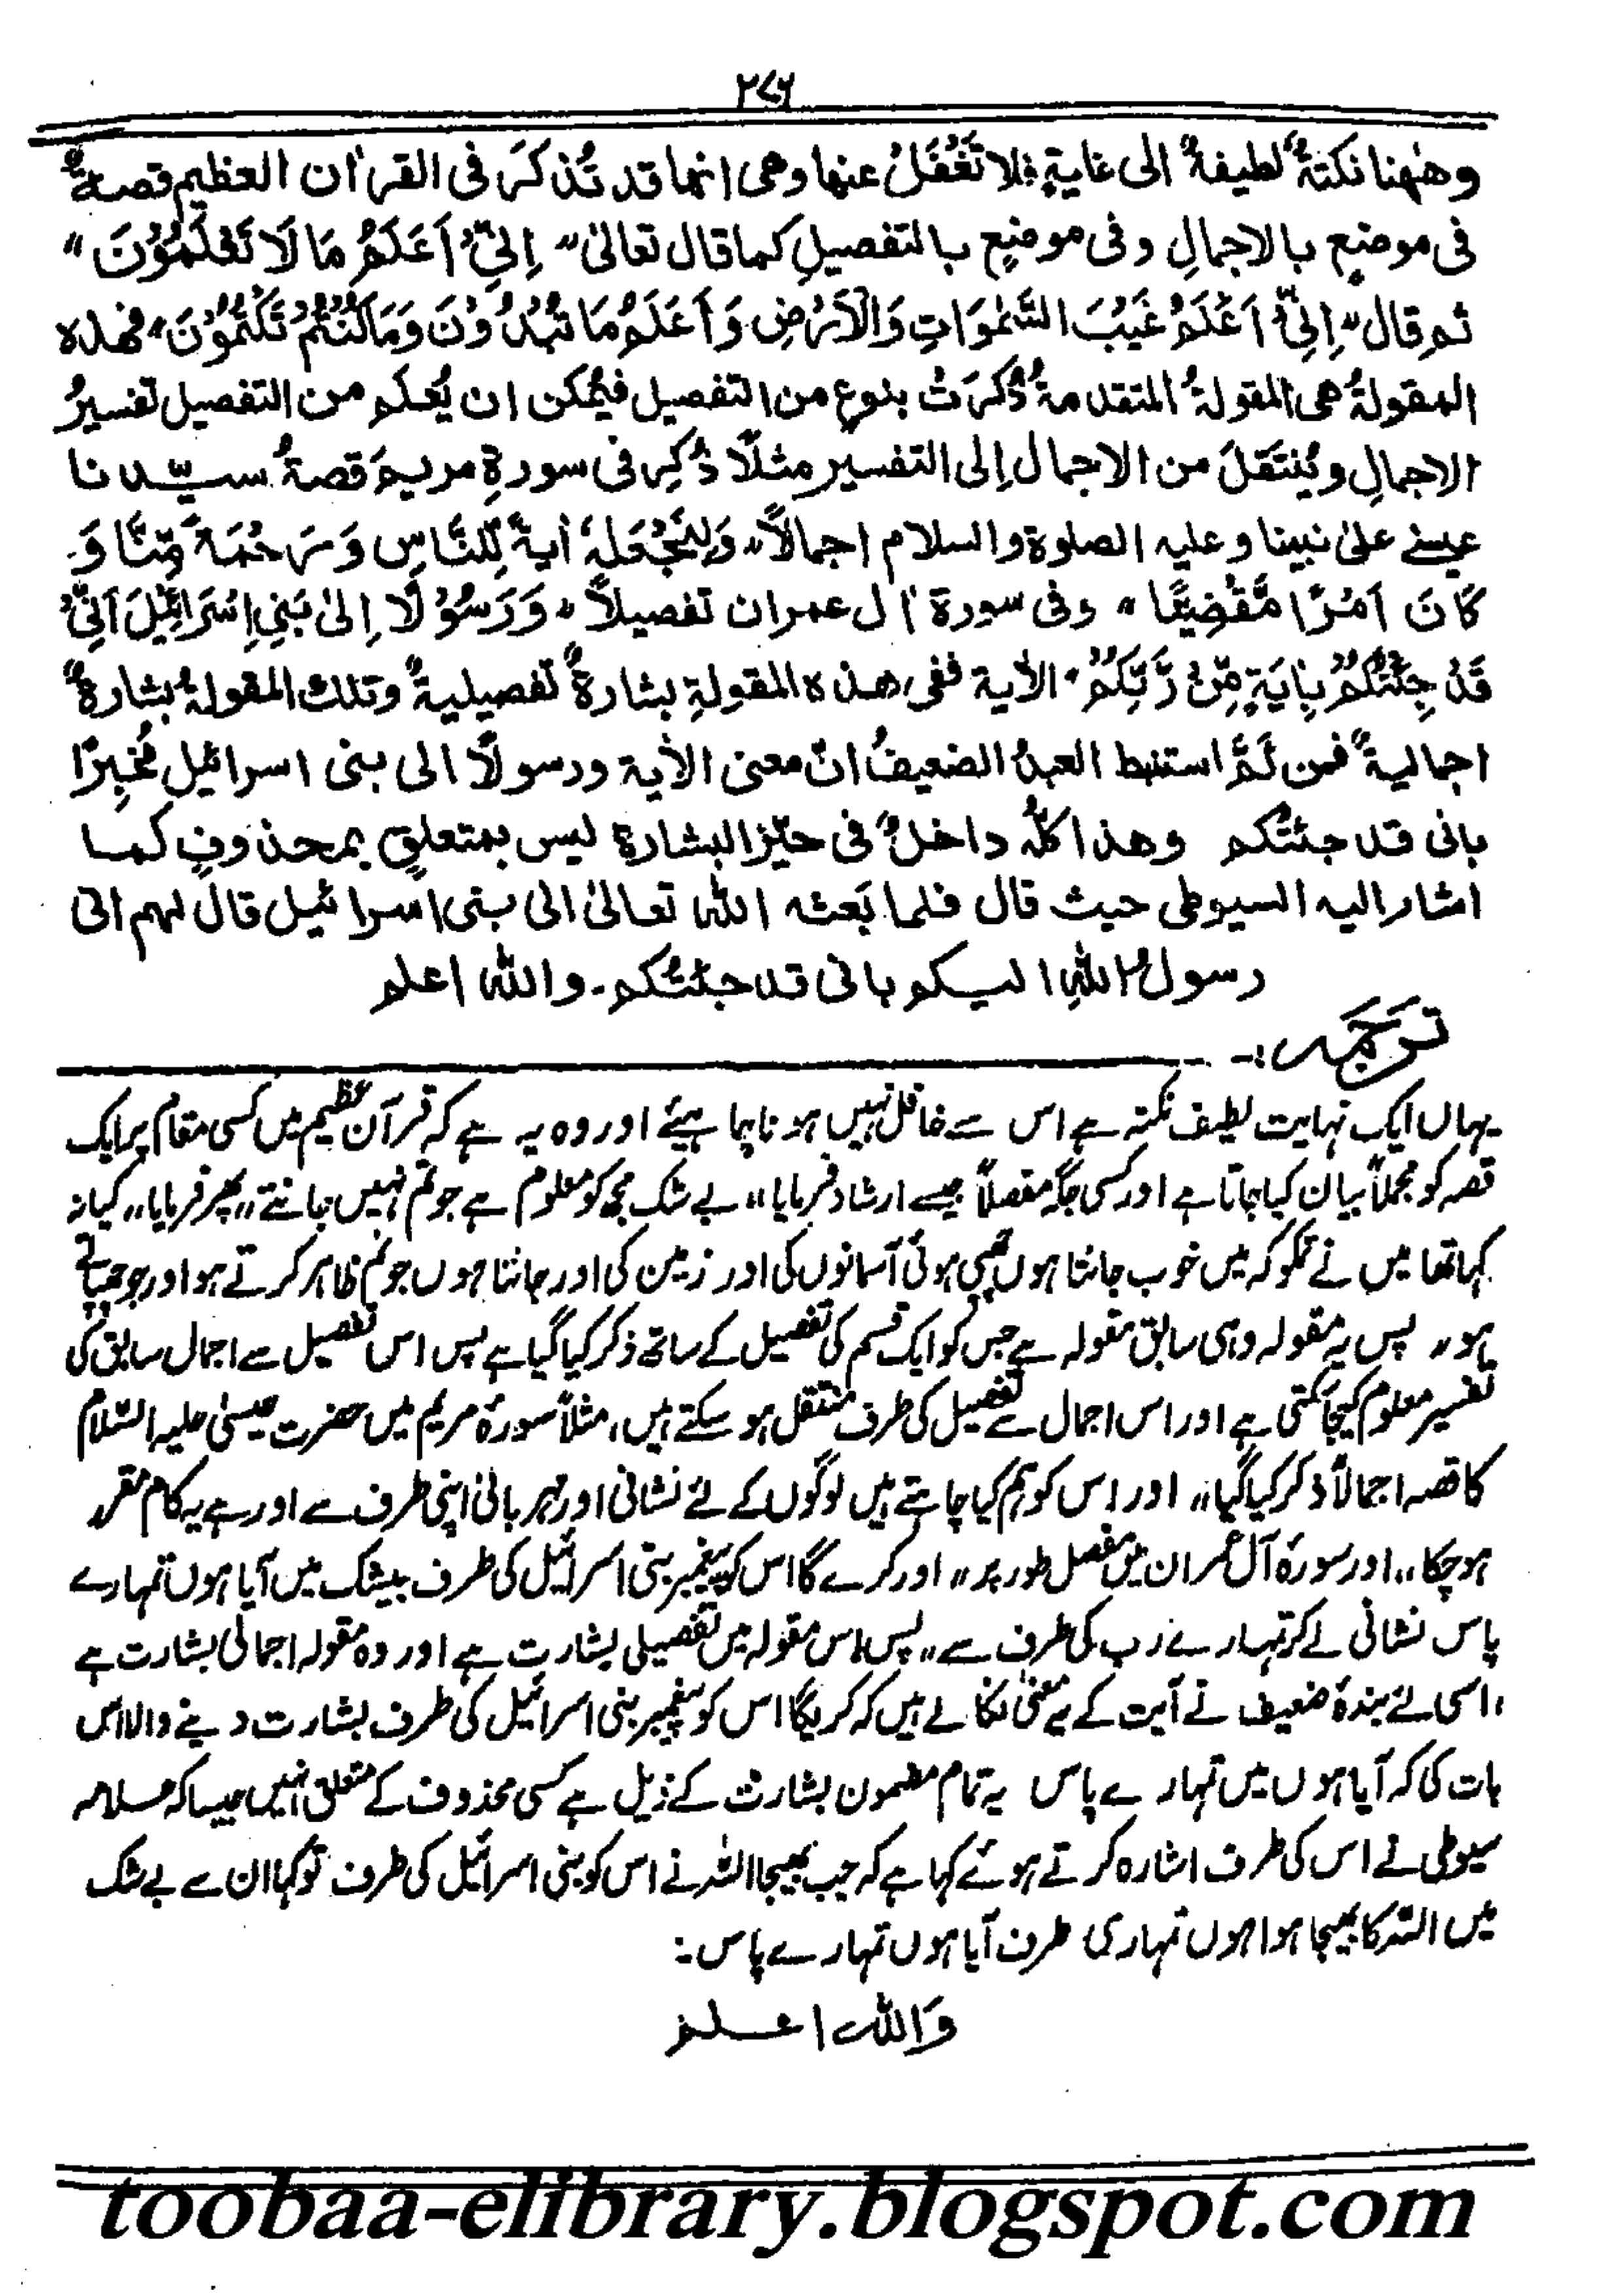 ۲۷۶
وھٰھنا نکتۃٌ لطیفۃٌ الی غایۃٍ فلا تَغْفَلْ عنھا وھی انھا قد تُذکَرَ فی القراٰن العظیم قصۃٌ
فی موضعٍ بالاجمالِ وفی موضعٍ بالتفصیلِ کما قال تعالیٰ ״ اِنِّیْٓ اَعْلَمُ مَا لَا تَعْلَمُوْنَ ״
ثم قال ״ اِنِّیْٓ اَعْلَمُ غَیْبَ السَّمٰوَاتِ وَالْاَرْضِ وَاَعْلَمُ مَا تُبْدُوْنَ وَمَا کُنْتُمْ تَکْتُمُوْنَ ״ فھذہ
المقولۃُ ھی المقولۃُ المتقدمۃُ ذُکِرَتْ بنوعٍ من التفصیل فیُمکن ان یُعلَم من التفصیل تفسیرُ
الاجمالِ ویُنتَقلَ من الاجمال اِلی التفسیر مثلاً ذُکِر فی سورۃِ مریمَ قصۃُ سیّدنا
عیسیٰ علیٰ نبینا وعلیہ الصلوۃ والسلام اجمالاً ״ وَلِنَجْعَلَہٗٓ اٰیَۃً لِّلنَّاسِ وَرَحْمَۃً مِّنَّا وَ
کَانَ اَمْرًا مَّقْضِیًّا ״ وفی سورۃ اٰل عمران تفصیلاً ״ وَرَسُوْلًا اِلیٰ بَنِیْٓ اِسْرَائِیْلَ اَنِّیْ
قَدْ جِئْتُکُمْ بِاٰیَۃٍ مِّنْ رَّبِّکُمْ ״ الآیۃ ففی ھذہ المقولۃِ بشارۃٌ تفصیلیۃٌ وتلك المقولۃُ بشارۃٌ
اجمالیۃٌ فمن ثَمَّ استنبط العبدُ الضعیفُ انّ معنی الآیۃ ورسولاً الی بنی اسرائیل مُخْبِرًا
بانی قد جئتُکم وھذا کلُّہ داخلٌ فی حیّز البشارۃ لیس بمتعلقٍ بمحذوفٍ کما
اشار الیہ السیوطی حیث قال فلما بَعثہ اللہ تعالیٰ الی بنی اسرائیل قال لہم انی
رسول اللہِ الیکم بانی قد جئتُکم۔ واللہ اعلم
ترجمہ :۔
یہاں ایک نہایت لطیف نکتہ ہے اس سے غافل نہیں ہونا چاہئیے اور وہ یہ ہے کہ قرآن عظیم میں کسی مقام پر ایک
قصہ کو مجملاً بیان کیا جاتا ہے اور کسی جگہ مفصلاً جیسے ارشاد فرمایا ״ بے شک مجھ کو معلوم ہے جو تم نہیں جانتے ״ پھر فرمایا ״ کیا نہ
کہا تھا میں نے تمکو کہ میں خوب جانتا ہوں چھپی ہوئی آسمانوں کی اور زمین کی اور جانتا ہوں جو تم ظاہر کرتے ہو اور جو چھپاتے
ہو ״ پس یہ مقولہ وہی سابق مقولہ ہے جس کو ایک قسم کی تفصیل کے ساتھ ذکر کیا گیا ہے پس اس تفصیل سے اجمال سابق کی
تفسیر معلوم کیجاسکتی ہے اور اس اجمال سے تفصیل کی طرف منتقل ہو سکتے ہیں، مثلاً سورۂ مریم میں حضرت عیسیٰ علیہ السّلام
کا قصہ اجمالاً ذکر کیا گیا ״ اور اس کو ہم کیا چاہتے ہیں لوگوں کے لئے نشانی اور مہربانی اپنی طرف سے اور ہے یہ کام مقرر
ہوچکا ״ اور سورۂ آل عمران میں مفصل طور پر ״ اور کرے گا اس کو پیغمبر بنی اسرائیل کی طرف بیشک میں آیا ہوں تمہارے
پاس نشانی لے کر تمہارے رب کی طرف سے ״ پس اس مقولہ میں تفصیلی بشارت ہے اور وہ مقولہ اجمالی بشارت ہے
، اسی لئے بندۂ ضعیف نے آیت کے یہ معنیٰ نکالے ہیں کہ کریگا اس کو پیغمبر بنی اسرائیل کی طرف بشارت دینے والا اس
بات کی کہ آیا ہوں میں تمہارے پاس یہ تمام مضمون بشارت کے ذیل ہے کسی محذوف کے متعلق نہیں جیسا کہ علامہ
سیوطی نے اس کی طرف اشارہ کرتے ہوئے کہا ہے کہ جب بھیجا اللہ نے اس کو بنی اسرائیل کی طرف تو کہا ان سے بے شک
میں اللہ کا بھیجا ہوا ہوں تمہاری طرف آیا ہوں تمہارے پاس :۔
وَاللہ اعلم
toobaa-elibrary.blogspot.com